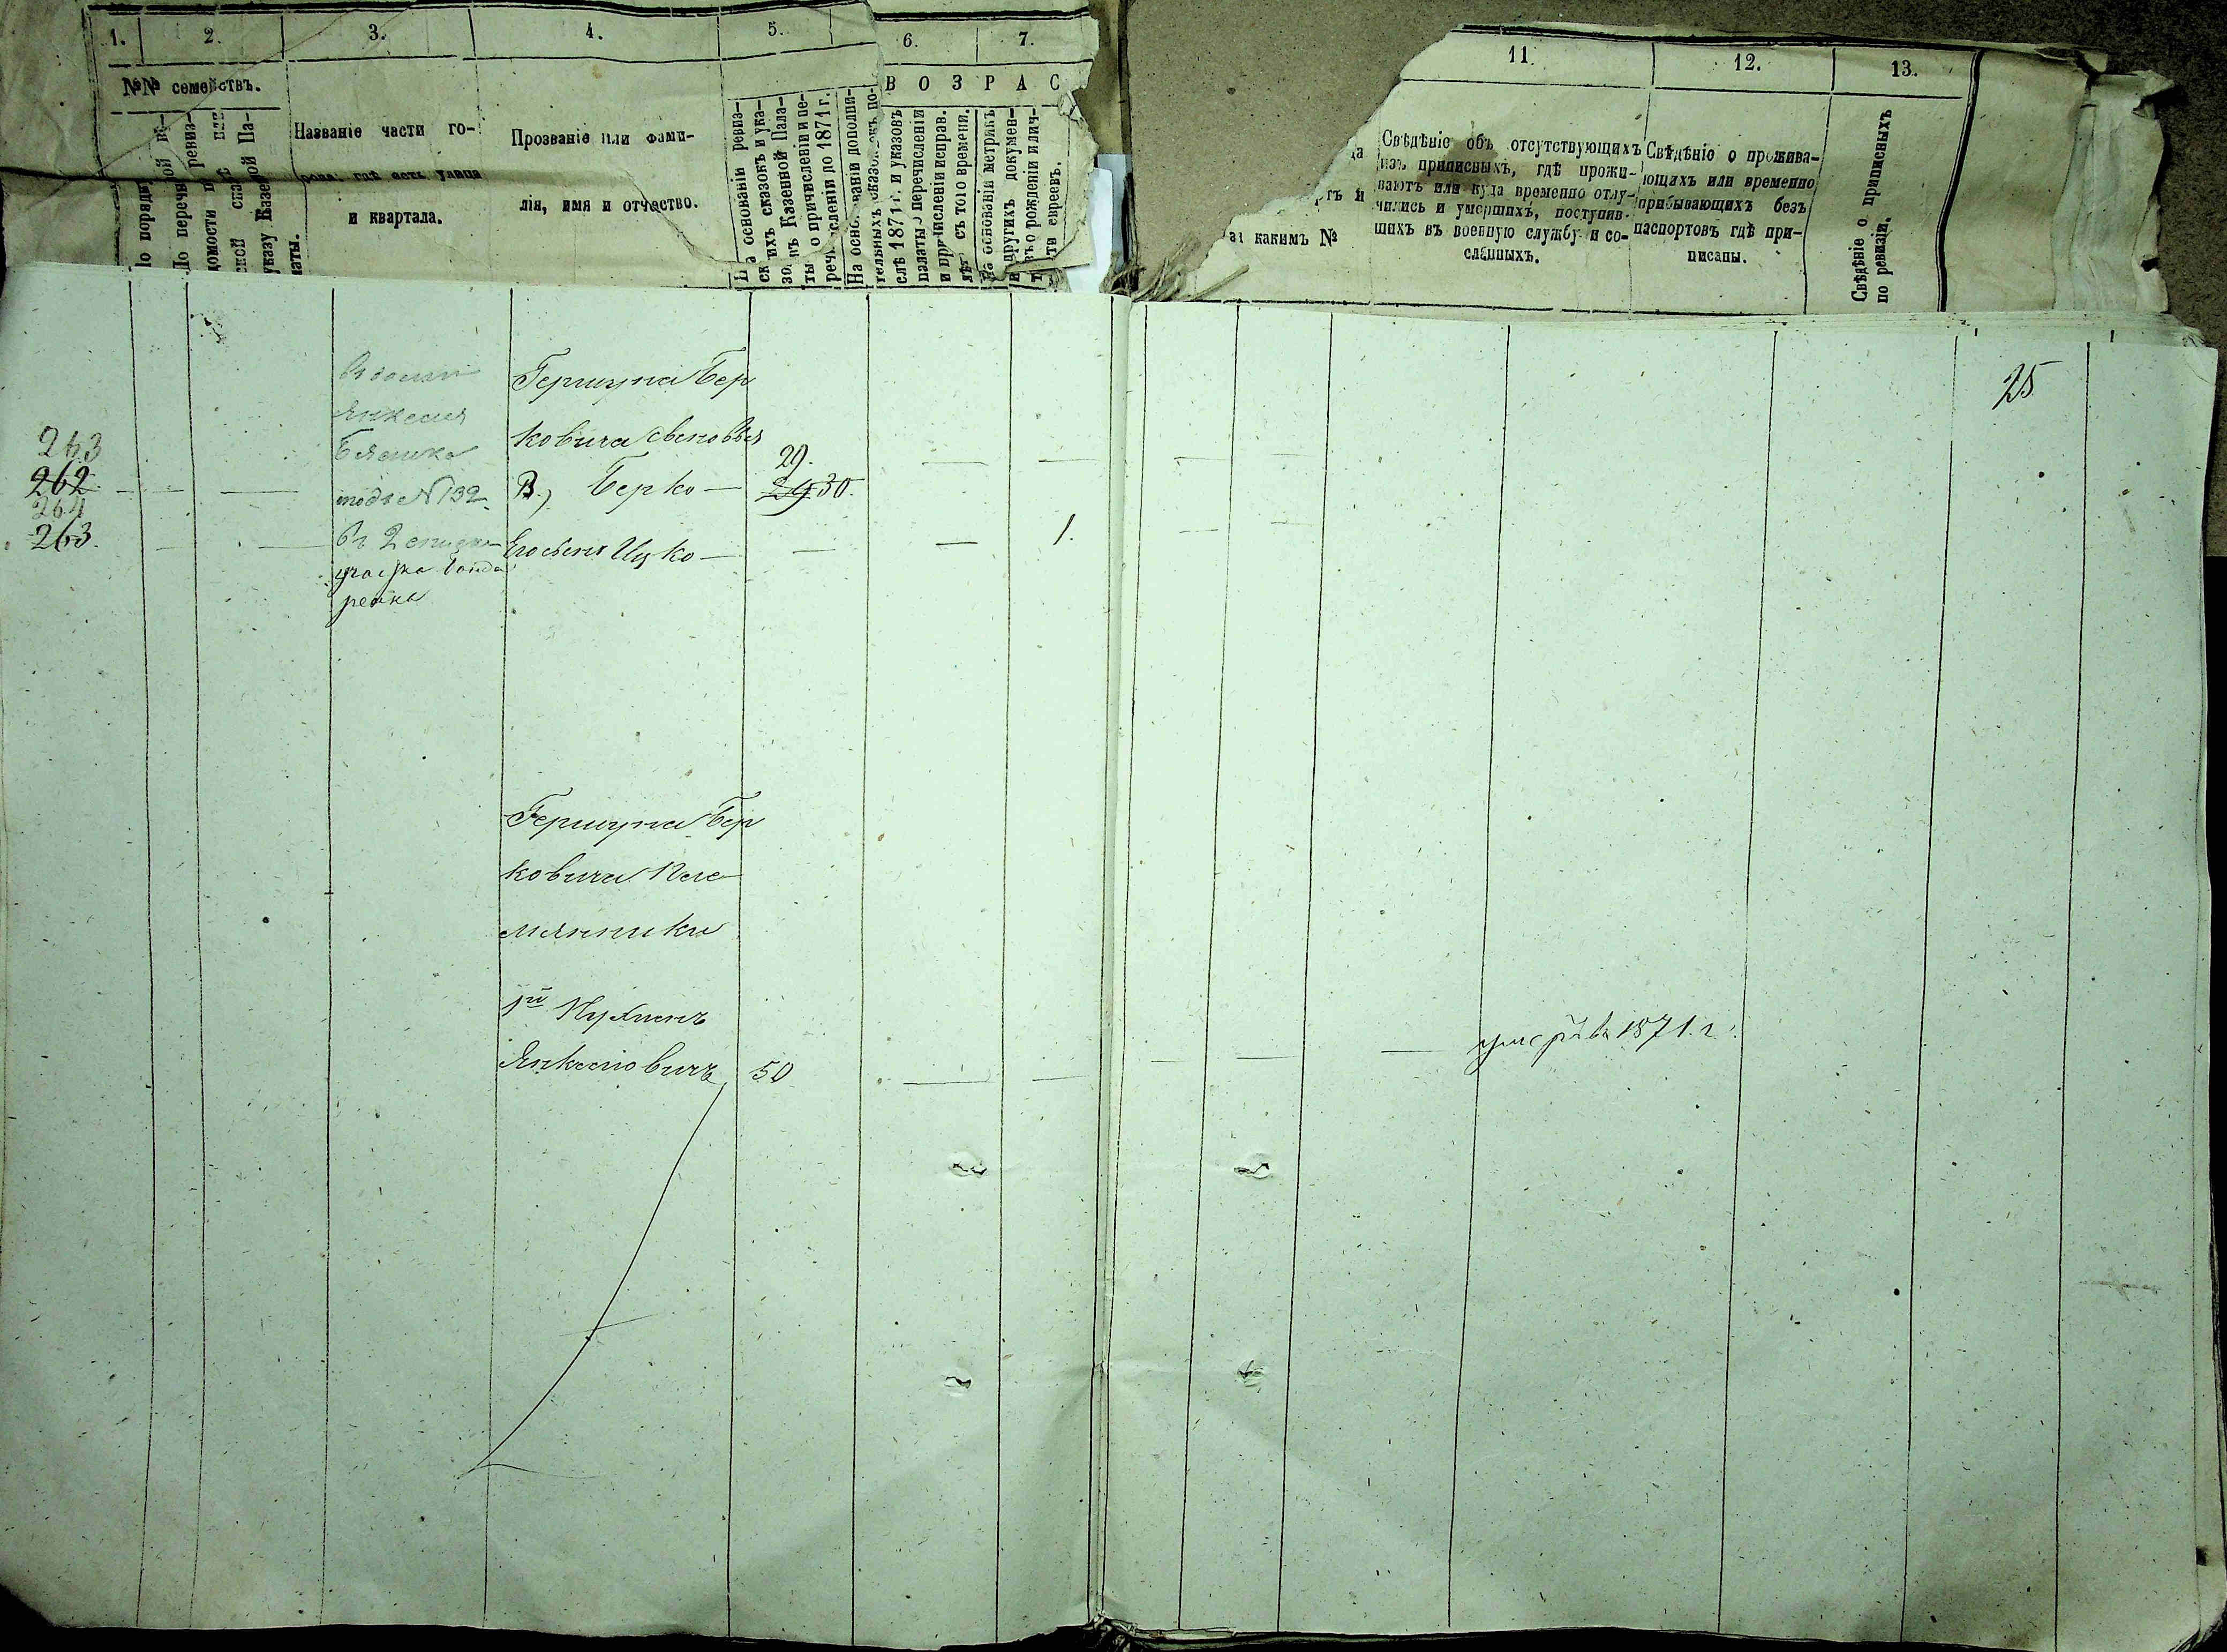 1. 2. 3. 4. 5. 6. 7. 11. 12. 13.
№№ семействъ.
В О З Р А С
Названіе части го-
рода, гдѣ есть улица
и квартала.
Прозваніе или фами-
лія, имя и отчество.
На основаніи ревиз-
скихъ сказокъ и ука-
зовъ Казенной Пала-
ты о причисленіи и пе-
речисленіи до 1871 г.
На основаніи дополни-
тельныхъ сказокъ по-
слѣ 1871 г. и указовъ
палаты о перечисленіи
и причисленіи исправ.
лѣтъ съ того времени.
На основаніи метрикъ
и другихъ докумен-
товъ о рожденіи и лич-
ности евреевъ.
каким №
Свѣдѣніе объ отсутствующихъ
изъ приписныхъ, гдѣ прожи-
ваютъ или куда временно отлу-
чились и умершихъ, поступив-
шихъ въ военную службу и со-
сланныхъ.
Свѣдѣніе о прожива-
ющихъ или временно
прибывающихъ безъ
паспортовъ гдѣ при-
писаны.
Свѣдѣніе о приписныхъ
по ревизіи.
25
263
262
264
263.
Янкеля
подъ N 132
въ 2
Гершуна Бер
ковича сыновья
В.) Берко — 29. 29 30.
Его сынъ Ицко — 1.
Гершуна Бер
ковича Пле
мянники
1й Нухимъ
Янкелевичъ 50
умеръ въ 1871. г.